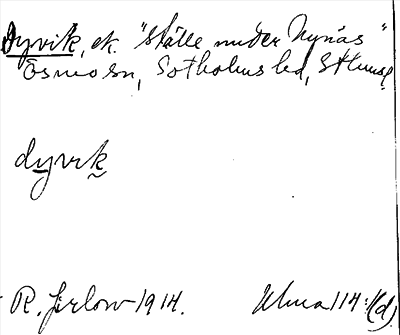 Dyvik, ek. "ställe under Nynäs"
Ösmo sn, Sotholms hd, Sthms l
dyvik
R. Jirlow 1914. Ulma 114:1(d)